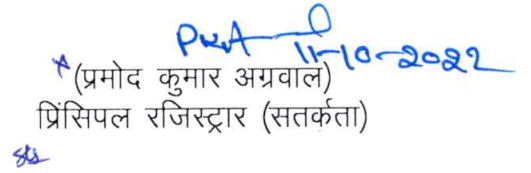 11-10-2022
(प्रमोद कुमार अग्रवाल)
प्रिंसिपल रजिस्ट्रार (सतर्कता)